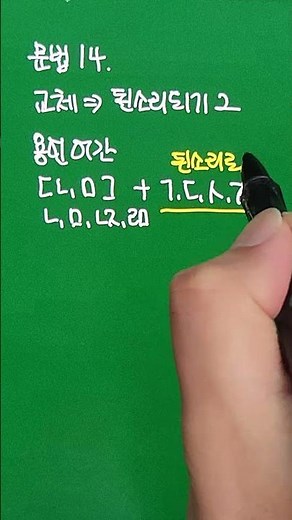 문법 14.
교체 ⇒ 된소리되기 2
용언 어간
된소리로
[ㄴ, ㅁ] + ㄱ, ㄷ, ㅅ, ㅈ
ㄴ, ㅁ, ㄵ, ㄻ